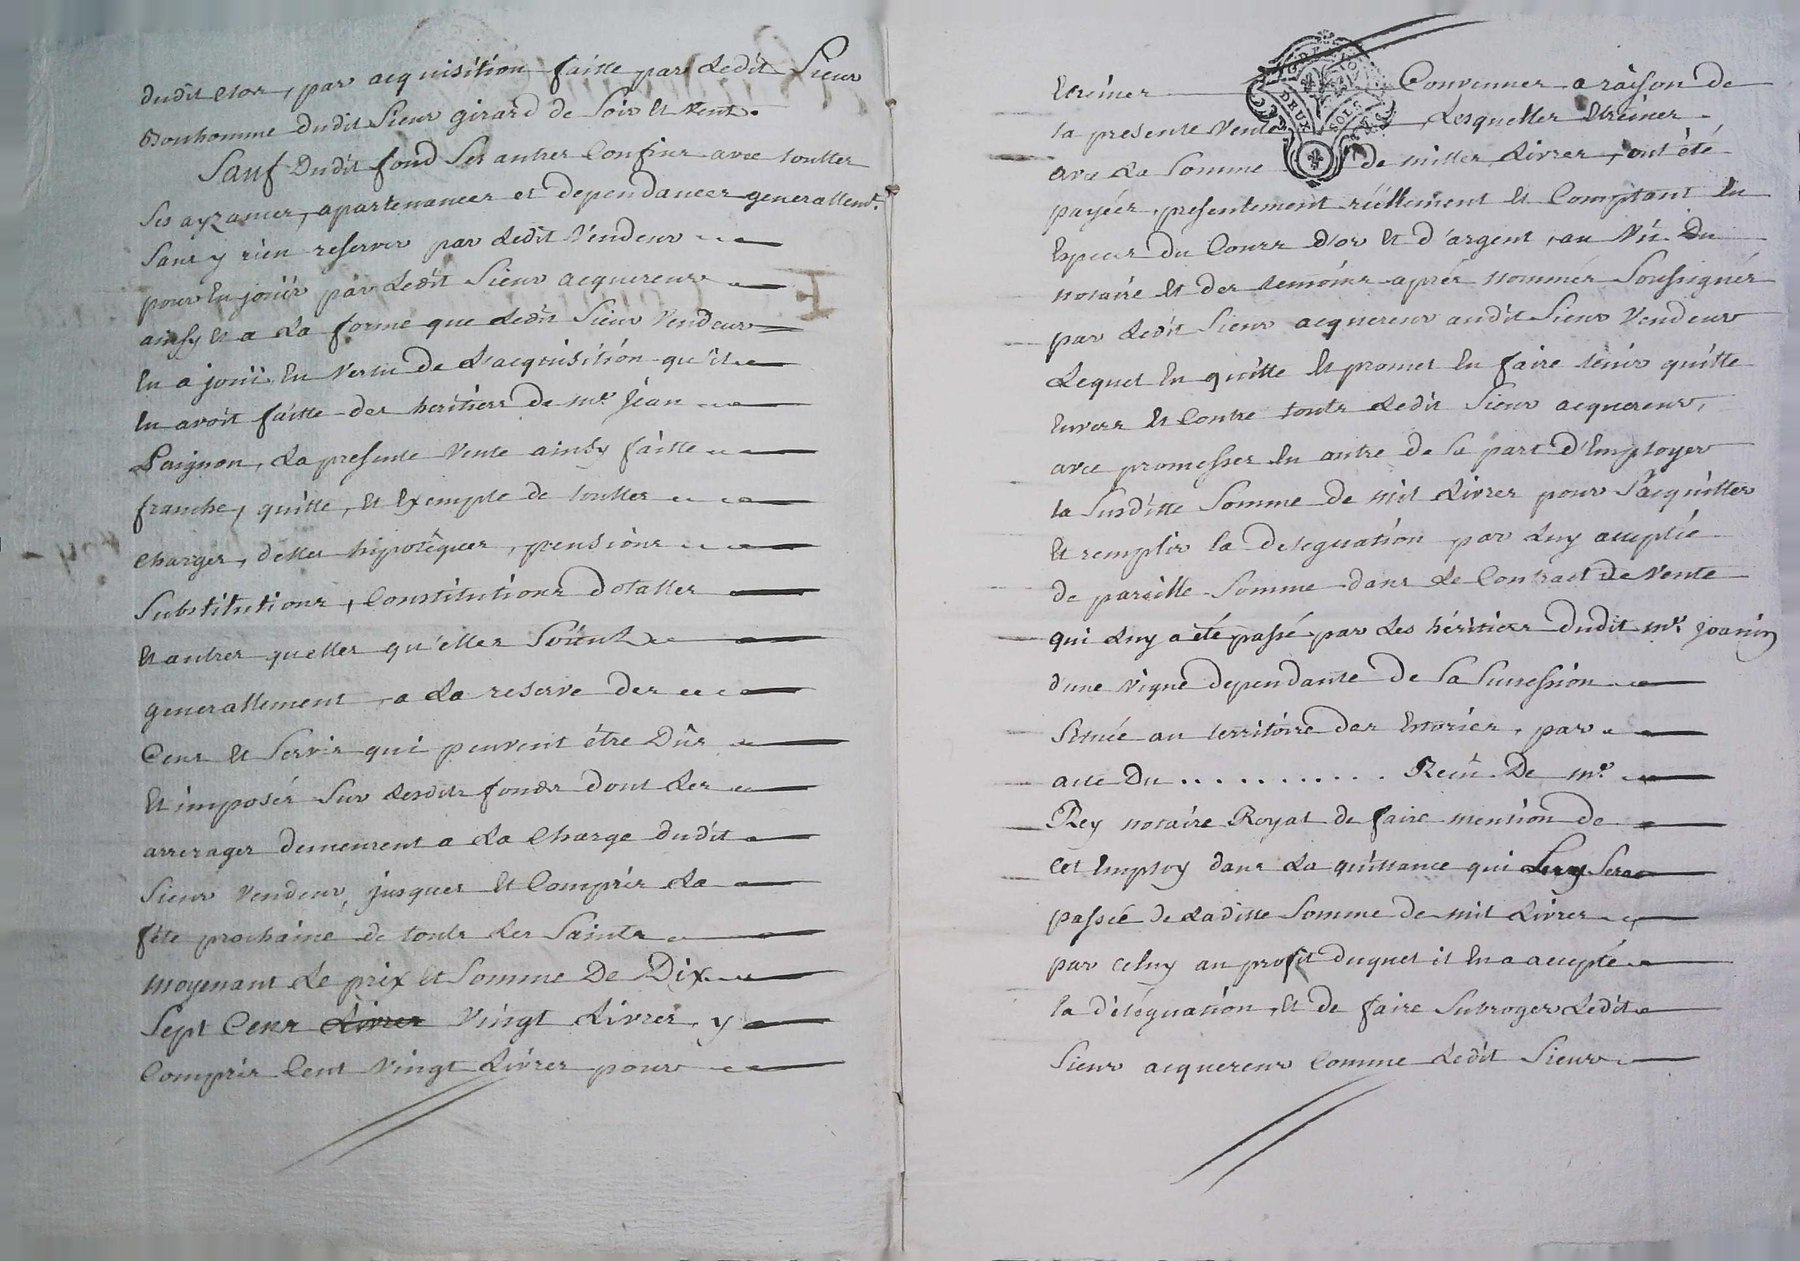 dudit clos, par acquisition faitte par Ledit Sieur
Bonhomme dudit Sieur girard de Soir et vent.
Sauf Dudit fond Ses autres Confins avec touttes
Ses ayzances, apartenances et dependances generallemt.
Sans y rien reserver par Ledit Vendeur
pour En joüir par Ledit Sieur acquereur
ainsy Et a La forme que Ledit Sieur Vendeur
En a joüi, En vertu de L'acquisition qu'il
En avoit faitte des heritiers de mr. Jean
La presente Vente ainsy faitte
franche, quitte, Et Exempte de touttes
Charges, dettes hipotêques, pensions
Substitutions, Constitutions Dotalles
Et autres quelles qu'elles Soient
generallement, a La reserve des
Cens Et Servis qui peuvent être Dûs
Et imposés Sur Lesdits fonds dont Les
arrerages demeurent a La Charge dudit
Sieur Vendeur, jusques Et Compris La
fête prochaine de touts Les Saints
moyenant Le prix Et Somme De Dix
Sept Cens Livres Vingt Livres, y
Compris Cent Vingt Livres pour
Etreines Convenues a raison de
la presente Vente, Lesquelles Etreines
avec La Somme de milles Livres, ont été
payées, presentement réellement Et Comptant En
Especes du Cours d'or Et d'argent, au Vû Du
notaire Et des temoins après nommés Soussignés
par Ledit Sieur acquereur audit Sieur Vendeur
Lequel En quitte Et promet En faire tenir quitte
Envers Et Contre touts Ledit Sieur acquereur,
avec promesses En outre de Sa part d'Employer
la Susditte Somme de mil Livres pour S'acquitter
Et remplir la deleguation par Luy acceptée
de pareille Somme dans Le Contract De Vente
qui Luy a été passé par Les héritiers dudit mr. Joanin
d'une vigne dependante de Sa Succession
Située au territoire des Essories, par
acte Du ........... Reçû De mr.
Rey notaire Royal de faire mention de
Cet Employ dans La quittance qui Luy Sera
passée de Laditte Somme de mil Livres
par celuy au profit duquel il En a accepté
la déléguation, Et de faire Subroger Ledit
Sieur acquereur Comme Ledit Sieur
DEUX SOLS